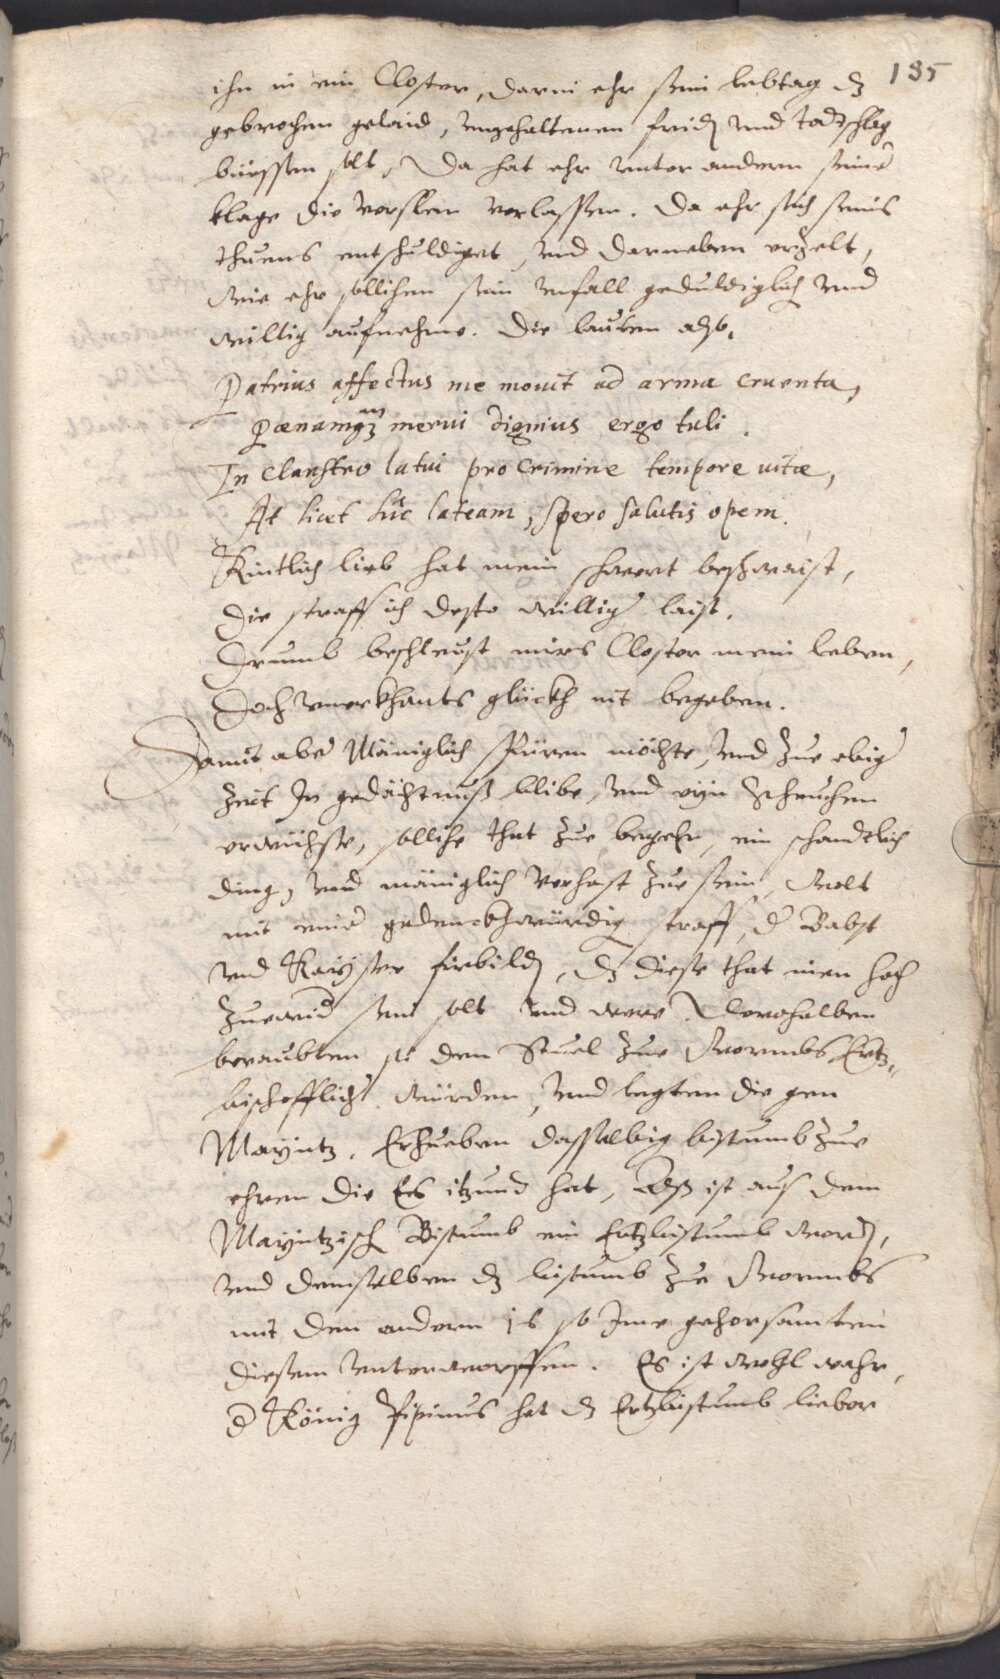 135
ihn in ein Closter, darin ehr sein lebtag dz
gebrochen gelaid, ungehaltenen frid und todtschlag
büessen solt, Da hat ehr unter andern seine
klage die verslein verlassen. Da ehr sich seines
thuens entschuldiget, und darneben erzelt,
wie ehr sollichen sein unfall geduldiglich und
willig aufnehme. Die lauten also,
Patrius affectus me mouit ad arma cruenta,
Pœnamq3 merui dignius ergo tuli.
In claustro latui pro crimine tempore uitæ,
At licet huc lateam, spero salutis opem.
Kintlich lieb hat mein schwert
die straff ich desto willig laist.
Drumb beschleust mirs Closter mein leben,
Doch glückh nit begeben.
Damit aber Mäniglich spüren möchte, und zue ebig
zeit In gedächtnuß blibe, und ein Scheuchen
erwüchse, solliche that zue begehn, ein schandtlich
ding, und mäniglich verhast zue sein, Wolt
mit einer gedenckhwürdig straff, d Babst
und Kayser fürbild, dz diese that inen hoch
zuewid sein solt und were. Derohalben
beraubten sie den Stuel zue Wormbs Ertz„
bischofflicher würden, und legten die gen
Mayntz. Erhueben dasselbig bistumb zue
ehren die Es itzund hat, Also ist aus dem
Mayntzisch Bistumb ein Ertzbistumb word,
und demselben dz bistumb zue Wormbs
mit den andern 16 so Ime gehorsamten
diesem unterworffen. Es ist wohl wahr,
d König Pipinus hat dz Ertzbistumb lieber